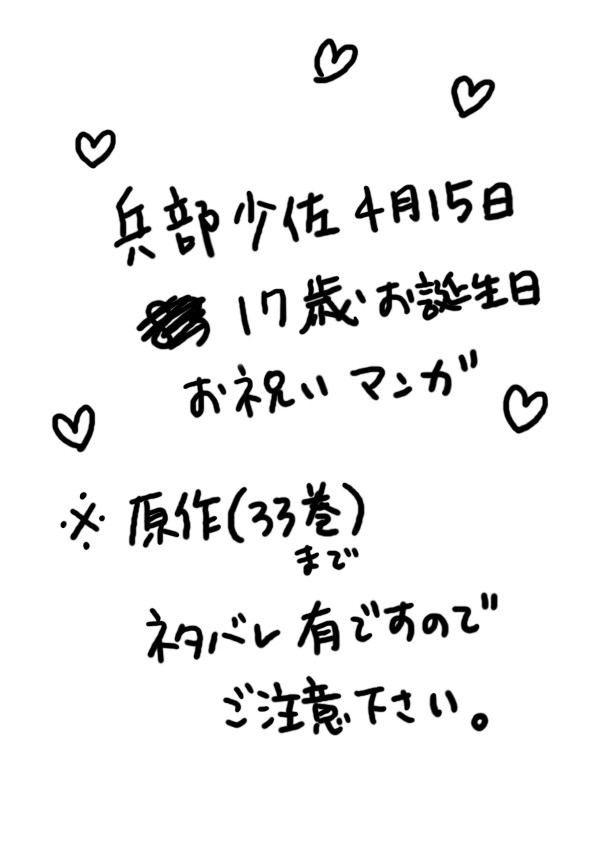 兵部少佐4月15日
17歳お誕生日
お祝いマンガ
※原作(33巻)
まで
ネタバレ有ですので
ご注意下さい。